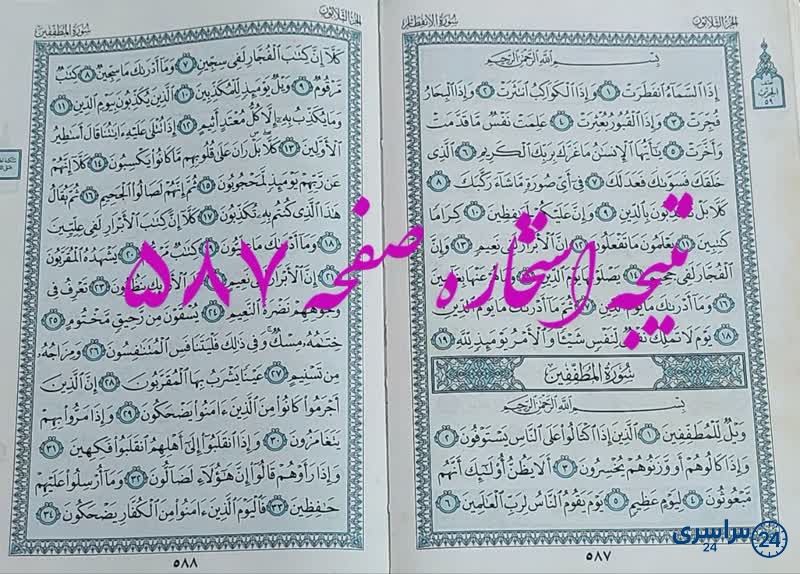 الجزء الثلاثون
سورة الانفطار
بِسْمِ اللَّهِ الرَّحْمَٰنِ الرَّحِيمِ
إِذَا السَّمَاءُ انفَطَرَتْ ١ وَإِذَا الْكَوَاكِبُ انتَثَرَتْ ٢ وَإِذَا الْبِحَارُ
فُجِّرَتْ ٣ وَإِذَا الْقُبُورُ بُعْثِرَتْ ٤ عَلِمَتْ نَفْسٌ مَّا قَدَّمَتْ
وَأَخَّرَتْ ٥ يَٰأَيُّهَا الْإِنسَٰنُ مَا غَرَّكَ بِرَبِّكَ الْكَرِيمِ ٦ الَّذِي
خَلَقَكَ فَسَوَّىٰكَ فَعَدَلَكَ ٧ فِي أَيِّ صُورَةٍ مَّا شَاءَ رَكَّبَكَ ٨
كَلَّا بَلْ تُكَذِّبُونَ بِالدِّينِ ٩ وَإِنَّ عَلَيْكُمْ لَحَٰفِظِينَ ١٠ كِرَامًا
كَٰتِبِينَ ١١ يَعْلَمُونَ مَا تَفْعَلُونَ ١٢ إِنَّ الْأَبْرَارَ لَفِي نَعِيمٍ ١٣ وَإِنَّ
الْفُجَّارَ لَفِي جَحِيمٍ ١٤ يَصْلَوْنَهَا يَوْمَ الدِّينِ ١٥ وَمَا هُمْ عَنْهَا بِغَائِبِينَ
١٦ وَمَا أَدْرَىٰكَ مَا يَوْمُ الدِّينِ ١٧ ثُمَّ مَا أَدْرَىٰكَ مَا يَوْمُ الدِّينِ
١٨ يَوْمَ لَا تَمْلِكُ نَفْسٌ لِّنَفْسٍ شَيْئًا وَالْأَمْرُ يَوْمَئِذٍ لِّلَّهِ ١٩
سُورَةُ المُطَفِّفِينَ
بِسْمِ اللَّهِ الرَّحْمَٰنِ الرَّحِيمِ
وَيْلٌ لِّلْمُطَفِّفِينَ ١ الَّذِينَ إِذَا اكْتَالُوا عَلَى النَّاسِ يَسْتَوْفُونَ ٢
وَإِذَا كَالُوهُمْ أَو وَّزَنُوهُمْ يُخْسِرُونَ ٣ أَلَا يَظُنُّ أُولَٰئِكَ أَنَّهُم
مَّبْعُوثُونَ ٤ لِيَوْمٍ عَظِيمٍ ٥ يَوْمَ يَقُومُ النَّاسُ لِرَبِّ الْعَٰلَمِينَ ٦
٥٨٧
الجزء الثلاثون
سورة المطففين
كَلَّا إِنَّ كِتَٰبَ الْفُجَّارِ لَفِي سِجِّينٍ ٧ وَمَا أَدْرَىٰكَ مَا سِجِّينٌ ٨ كِتَٰبٌ
مَّرْقُومٌ ٩ وَيْلٌ يَوْمَئِذٍ لِّلْمُكَذِّبِينَ ١٠ الَّذِينَ يُكَذِّبُونَ بِيَوْمِ الدِّينِ ١١
وَمَا يُكَذِّبُ بِهِ إِلَّا كُلُّ مُعْتَدٍ أَثِيمٍ ١٢ إِذَا تُتْلَىٰ عَلَيْهِ ءَايَٰتُنَا قَالَ أَسَٰطِيرُ
الْأَوَّلِينَ ١٣ كَلَّا بَلْ رَانَ عَلَىٰ قُلُوبِهِم مَّا كَانُوا يَكْسِبُونَ ١٤ كَلَّا إِنَّهُمْ
عَن رَّبِّهِمْ يَوْمَئِذٍ لَّمَحْجُوبُونَ ١٥ ثُمَّ إِنَّهُمْ لَصَالُوا الْجَحِيمِ ١٦ ثُمَّ يُقَالُ
هَٰذَا الَّذِي كُنتُم بِهِ تُكَذِّبُونَ ١٧ كَلَّا إِنَّ كِتَٰبَ الْأَبْرَارِ لَفِي عِلِّيِّينَ
١٨ وَمَا أَدْرَىٰكَ مَا عِلِّيُّونَ ١٩ كِتَٰبٌ مَّرْقُومٌ ٢٠ يَشْهَدُهُ الْمُقَرَّبُونَ
٢١ إِنَّ الْأَبْرَارَ لَفِي نَعِيمٍ ٢٢ عَلَى الْأَرَائِكِ يَنظُرُونَ ٢٣ تَعْرِفُ فِي
وُجُوهِهِمْ نَضْرَةَ النَّعِيمِ ٢٤ يُسْقَوْنَ مِن رَّحِيقٍ مَّخْتُومٍ ٢٥
خِتَٰمُهُ مِسْكٌ وَفِي ذَٰلِكَ فَلْيَتَنَافَسِ الْمُتَنَٰفِسُونَ ٢٦ وَمِزَاجُهُ
مِن تَسْنِيمٍ ٢٧ عَيْنًا يَشْرَبُ بِهَا الْمُقَرَّبُونَ ٢٨ إِنَّ الَّذِينَ
أَجْرَمُوا كَانُوا مِنَ الَّذِينَ ءَامَنُوا يَضْحَكُونَ ٢٩ وَإِذَا مَرُّوا بِهِمْ
يَتَغَامَزُونَ ٣٠ وَإِذَا انقَلَبُوا إِلَىٰ أَهْلِهِمُ انقَلَبُوا فَكِهِينَ ٣١
وَإِذَا رَأَوْهُمْ قَالُوا إِنَّ هَٰؤُلَاءِ لَضَالُّونَ ٣٢ وَمَا أُرْسِلُوا عَلَيْهِمْ
حَٰفِظِينَ ٣٣ فَالْيَوْمَ الَّذِينَ ءَامَنُوا مِنَ الْكُفَّارِ يَضْحَكُونَ ٣٤
٥٨٨
نتیجه استخاره صفحه ۵۸۷
سراسری 24
24